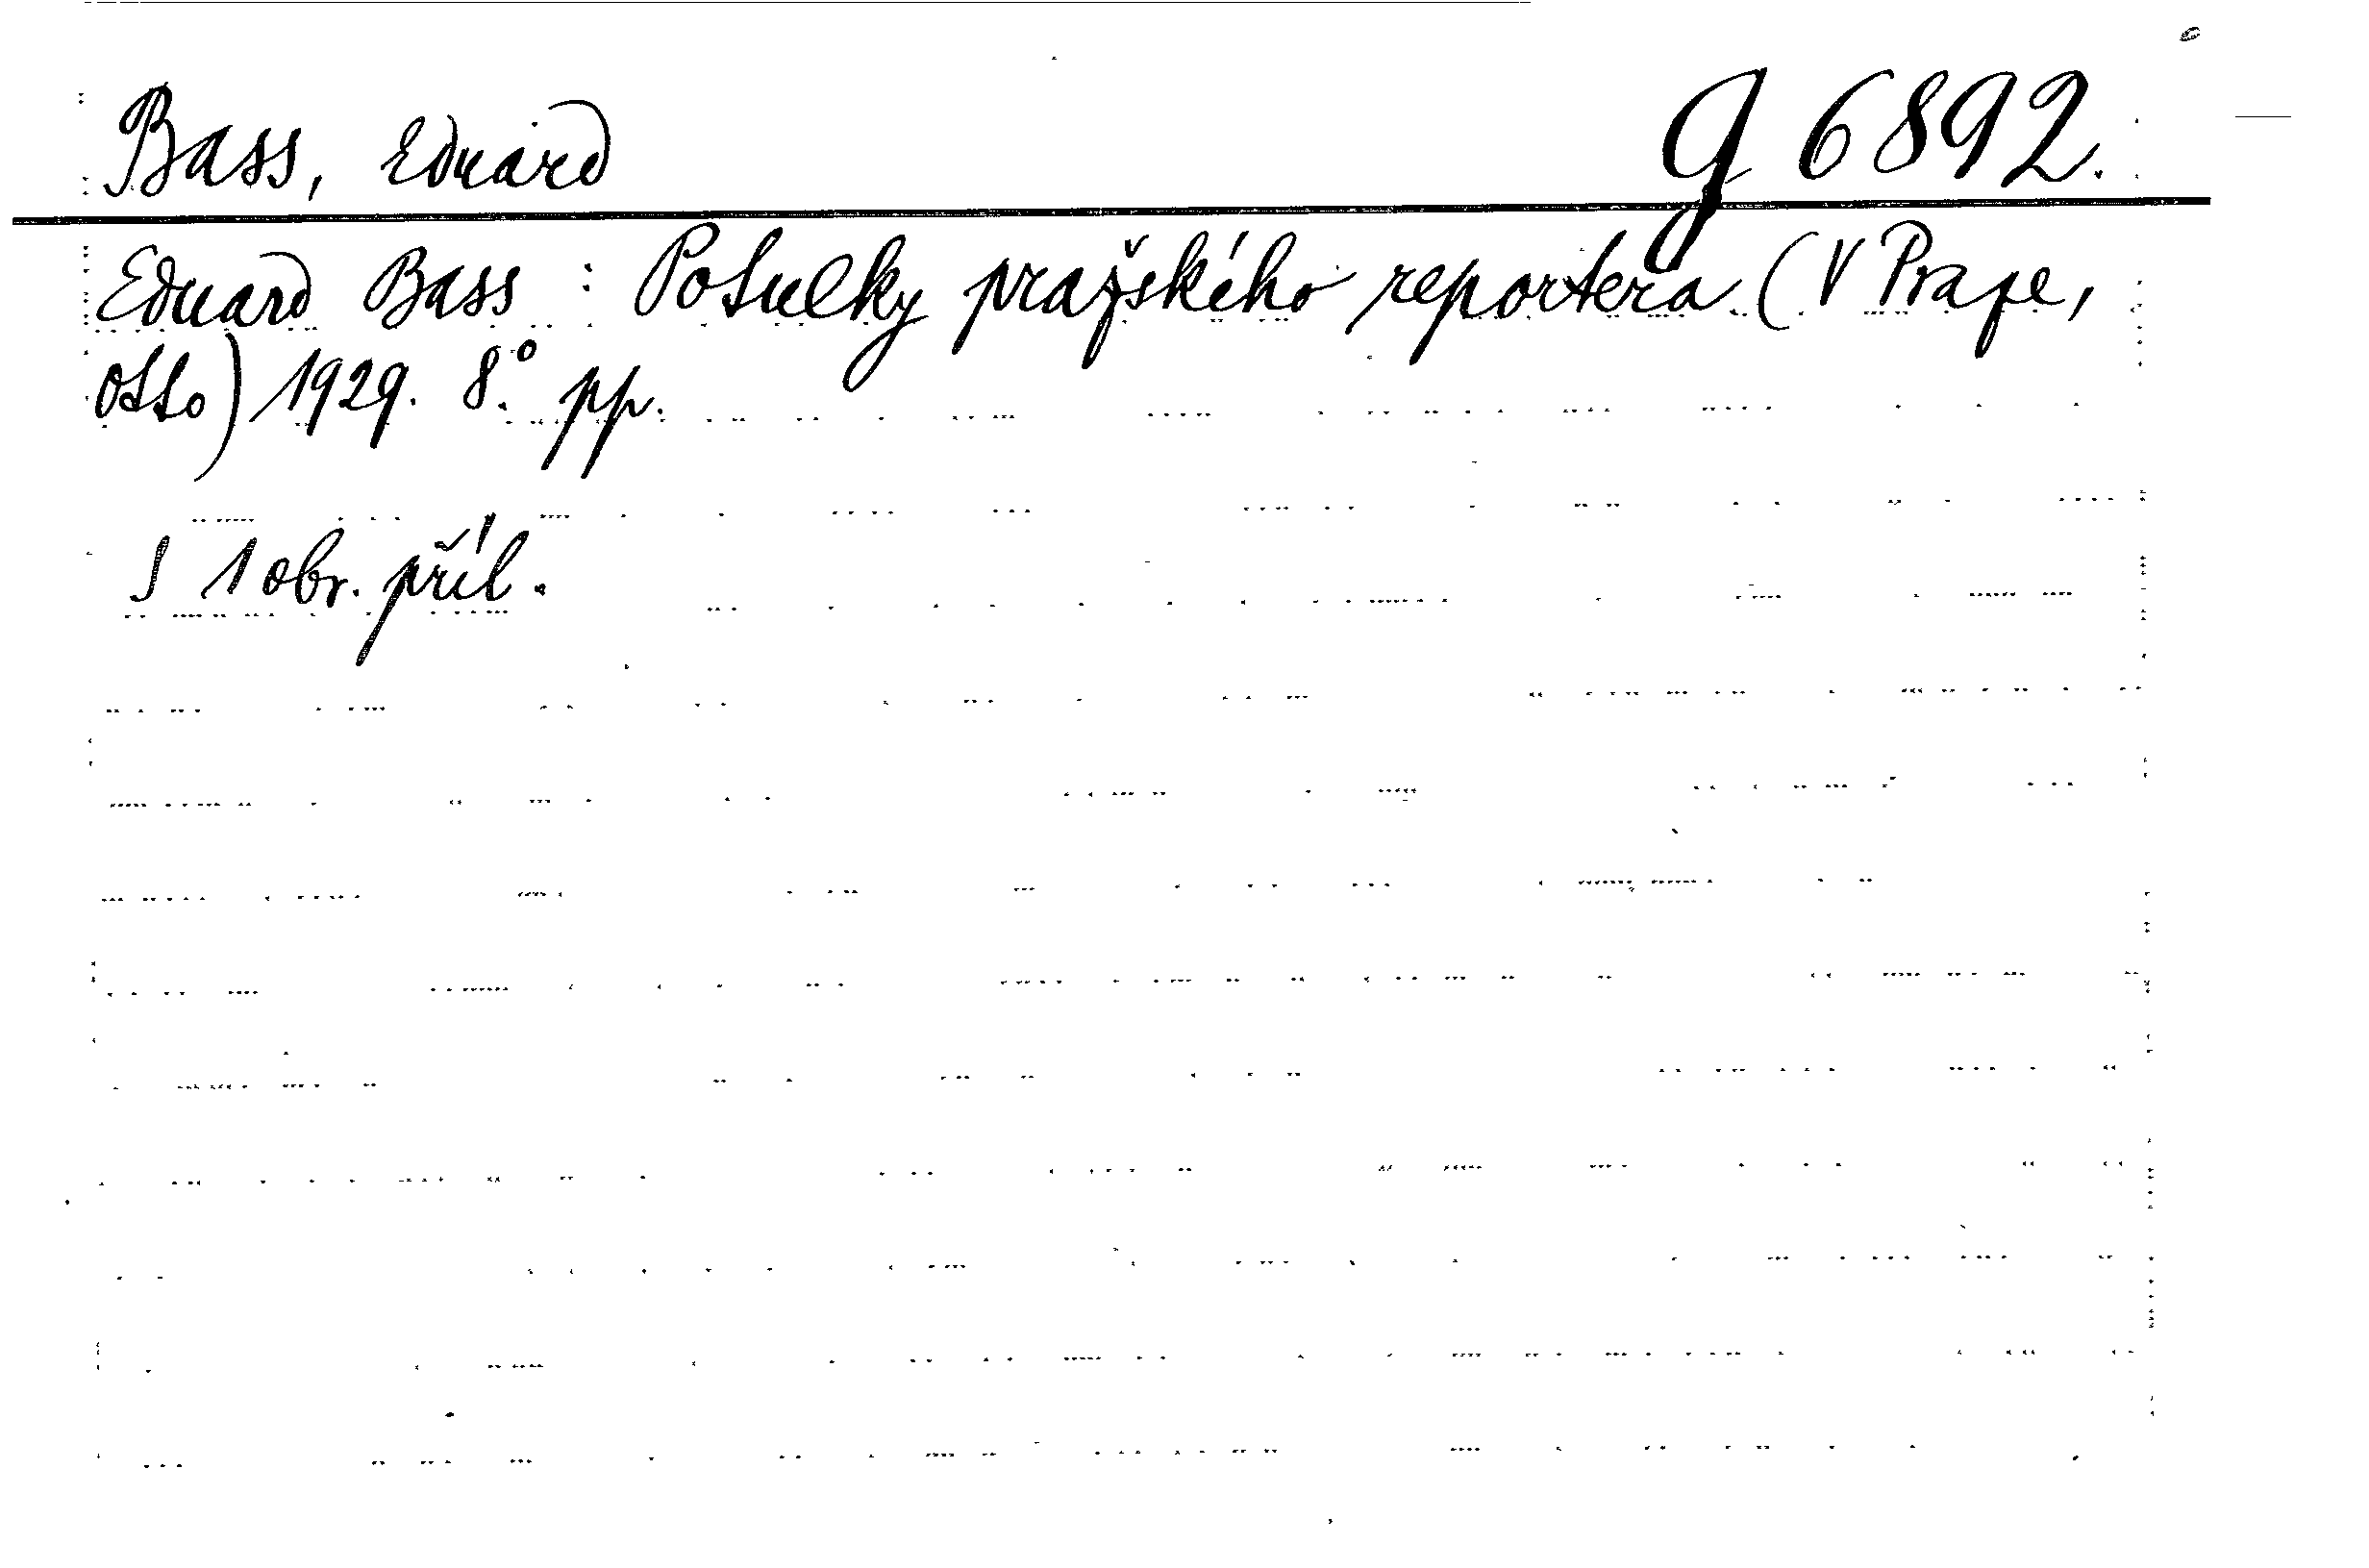 Bass, Eduard g 6892.
Eduard Bass : Potulky pražského reportera (V Praze,
Otto) 1929. 8.° pp.
S 1 obr. příl.